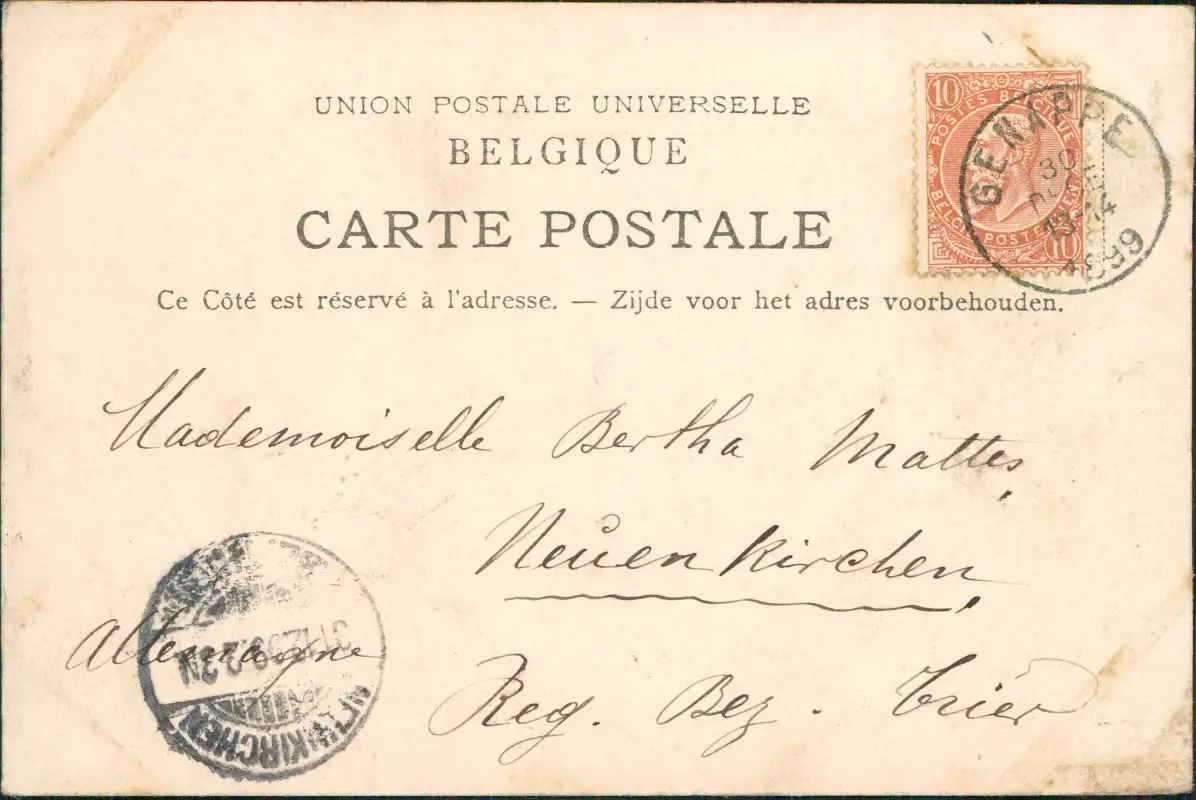 UNION POSTALE UNIVERSELLE
BELGIQUE
CARTE POSTALE
Ce Côté est réservé à l'adresse. — Zijde voor het adres voorbehouden.
10
POSTES BELGIQUE
BELGIE POSTERIJEN
10
GENAPPE
30
13-14
1899
Mademoiselle Bertha Mattes,
Neuenkirchen,
Allemagne
Reg. Bez. Trier
31.12.99.2-3N